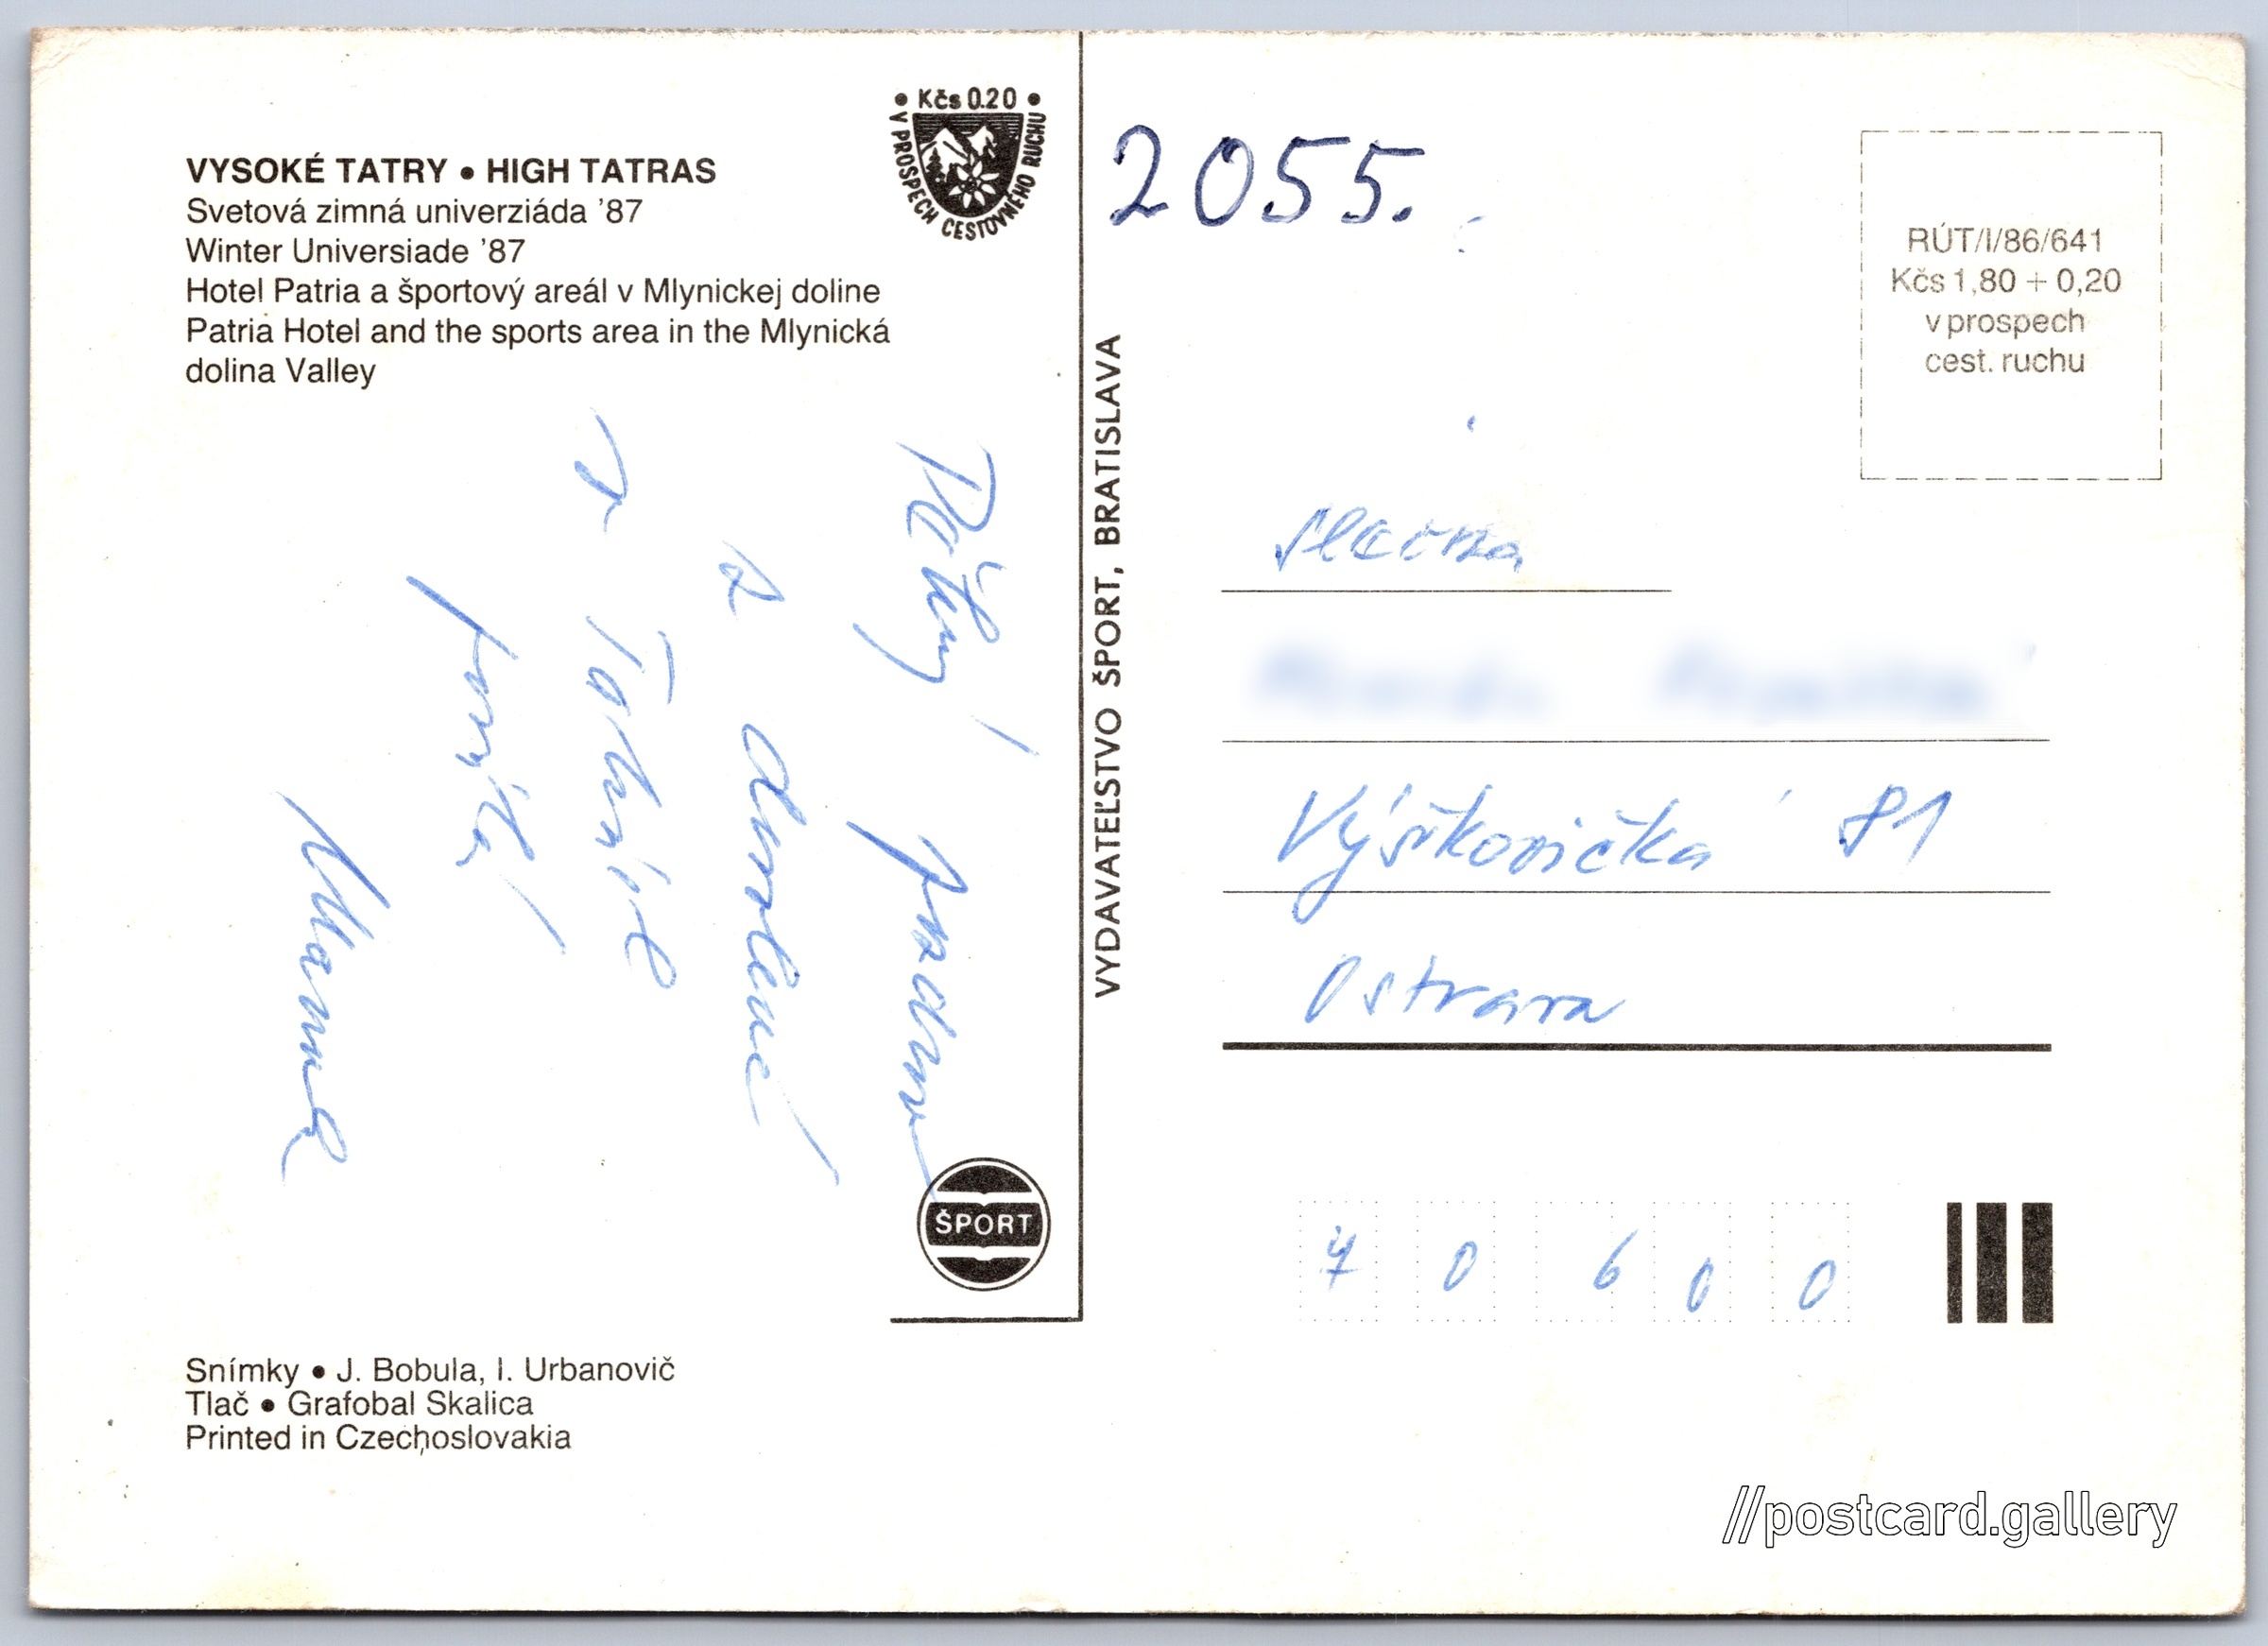 VYSOKÉ TATRY • HIGH TATRAS
Svetová zimná univerziáda '87
Winter Universiade '87
Hotel Patria a športový areál v Mlynickej doline
Patria Hotel and the sports area in the Mlynická
dolina Valley
• Kčs 0.20 •
V PROSPECH CESTOVNÉHO RUCHU
Pěkný
pozdrav
z
dovolené
v Tatrách
posílá
ŠPORT
Snímky • J. Bobula, I. Urbanovič
Tlač • Grafobal Skalica
Printed in Czechoslovakia
VYDAVATEĽSTVO ŠPORT, BRATISLAVA
2055.
RÚT/I/86/641
Kčs 1,80 + 0,20
v prospech
cest. ruchu
slečna
Výškovická 81
Ostrava
70600
//postcard.gallery